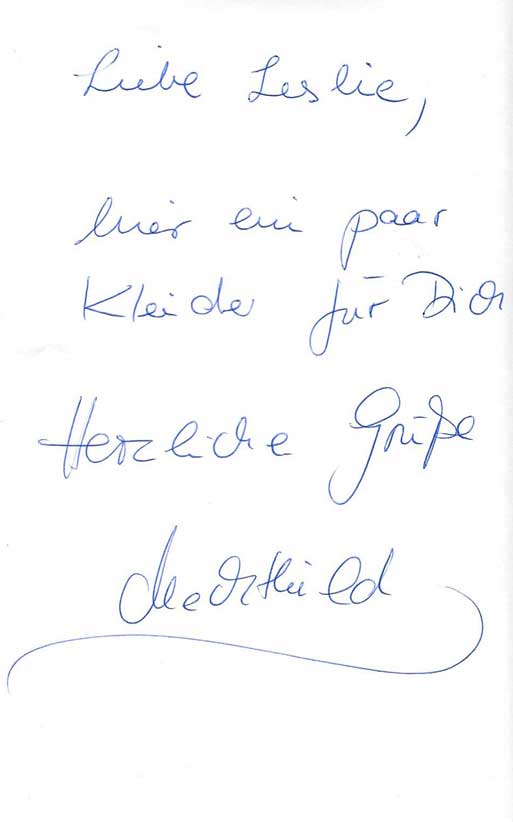 Liebe Leslie,
hier ein paar
Kleider für Dich
Herzliche Grüße
Mechthild